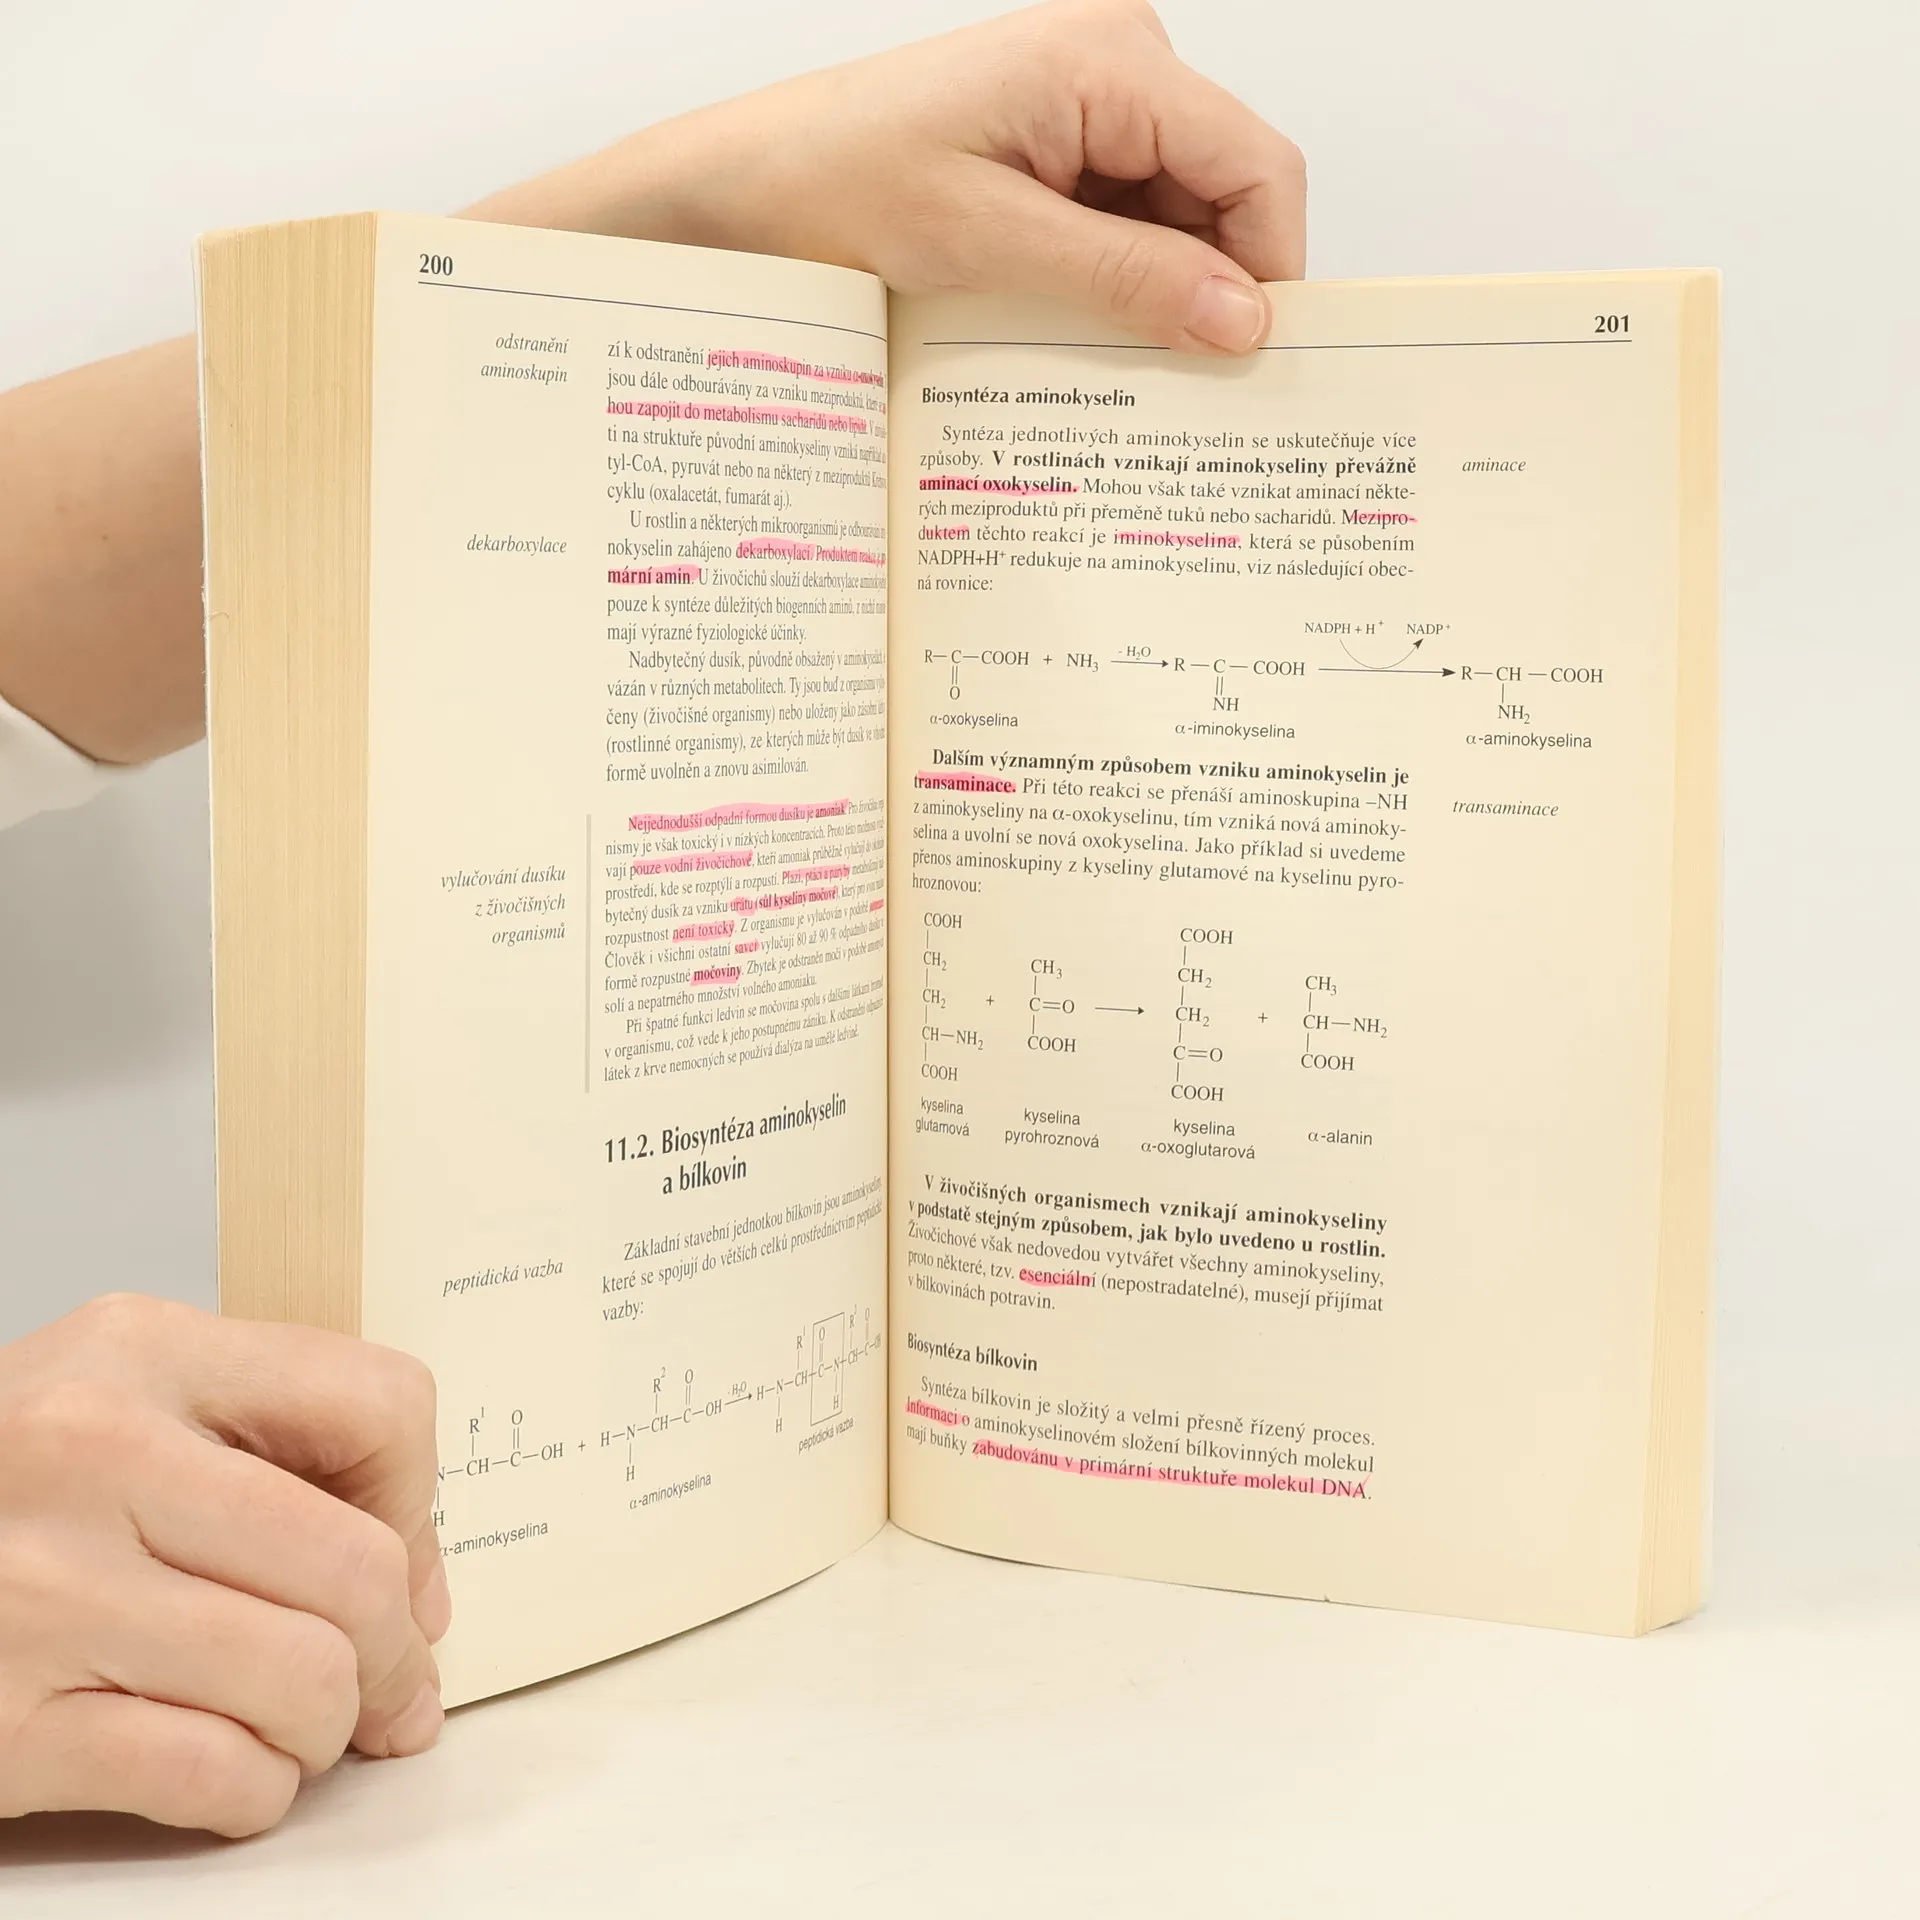 200
odstranění
aminoskupin
zí k odstranění jejich aminoskupin za vzniku
jsou dále odbourávány za vzniku meziproduktů, které
hou zapojit do metabolismu sacharidů nebo lipidů. V
ti na struktuře původní aminokyseliny vzniká například
tyl-CoA, pyruvát nebo na některý z meziproduktů
cyklu (oxalacetát, fumarát aj.).
dekarboxylace
U rostlin a některých mikroorganismů je odbourávání
nokyselin zahájeno dekarboxylací. Produktem reakce
mární amin. U živočichů slouží dekarboxylace
pouze k syntéze důležitých biogenních aminů, z nichž
mají výrazné fyziologické účinky.
Nadbytečný dusík, původně obsažený v aminokyselinách
vázán v různých metabolitech. Ty jsou buď z organismu
čeny (živočišné organismy) nebo uloženy jako zásobní
(rostlinné organismy), ze kterých může být dusík ve
formě uvolněn a znovu asimilován.
vylučování dusíku
z živočišných
organismů
Nejjednodušší odpadní formou dusíku je amoniak. Pro
nismy je však toxický i v nízkých koncentracích. Proto této možnosti
vají pouze vodní živočichové, kteří amoniak průběžně vylučují do
prostředí, kde se rozptýlí a rozpustí. Plazi, ptáci a
bytečný dusík za vzniku urátu (sůl kyseliny močové), který pro svou
rozpustnost není toxický. Z organismu je vylučován v podobě
Člověk i všichni ostatní savci vylučují 80 až 90 % odpadního dusíku
formě rozpustné močoviny. Zbytek je odstraněn močí v podobě
solí a nepatrného množství volného amoniaku.
Při špatné funkci ledvin se močovina spolu s dalšími látkami
v organismu, což vede k jeho postupnému zániku. K odstranění
látek z krve nemocných se používá dialýza na umělé ledvině.
11.2. Biosyntéza aminokyselin
a bílkovin
peptidická vazba
Základní stavební jednotkou bílkovin jsou aminokyseliny,
které se spojují do větších celků prostřednictvím peptidické
vazby:
R¹ O R² O R¹ O R² O
N—CH—C—OH + H—N—CH—C—OH - H₂O H—N—CH—C—N—CH—C—OH
H H H H
α-aminokyselina α-aminokyselina peptidická vazba
201
Biosyntéza aminokyselin
Syntéza jednotlivých aminokyselin se uskutečňuje více
způsoby. V rostlinách vznikají aminokyseliny převážně
aminací oxokyselin. Mohou však také vznikat aminací někte-
rých meziproduktů při přeměně tuků nebo sacharidů. Mezipro-
duktem těchto reakcí je iminokyselina, která se působením
NADPH+H⁺ redukuje na aminokyselinu, viz následující obec-
ná rovnice:
aminace
NADPH + H⁺ NADP⁺
R—C—COOH + NH₃ - H₂O R—C—COOH R—CH—COOH
O NH NH₂
α-oxokyselina α-iminokyselina α-aminokyselina
Dalším významným způsobem vzniku aminokyselin je
transaminace. Při této reakci se přenáší aminoskupina –NH
z aminokyseliny na α-oxokyselinu, tím vzniká nová aminoky-
selina a uvolní se nová oxokyselina. Jako příklad si uvedeme
přenos aminoskupiny z kyseliny glutamové na kyselinu pyro-
hroznovou:
transaminace
COOH COOH
CH₂ CH₃ CH₂ CH₃
CH₂ + C=O CH₂ + CH—NH₂
CH—NH₂ COOH C=O COOH
COOH COOH
kyselina kyselina kyselina α-alanin
glutamová pyrohroznová α-oxoglutarová
V živočišných organismech vznikají aminokyseliny
v podstatě stejným způsobem, jak bylo uvedeno u rostlin.
Živočichové však nedovedou vytvářet všechny aminokyseliny,
proto některé, tzv. esenciální (nepostradatelné), musejí přijímat
v bílkovinách potravin.
Biosyntéza bílkovin
Syntéza bílkovin je složitý a velmi přesně řízený proces.
Informaci o aminokyselinovém složení bílkovinných molekul
mají buňky zabudovánu v primární struktuře molekul DNA.